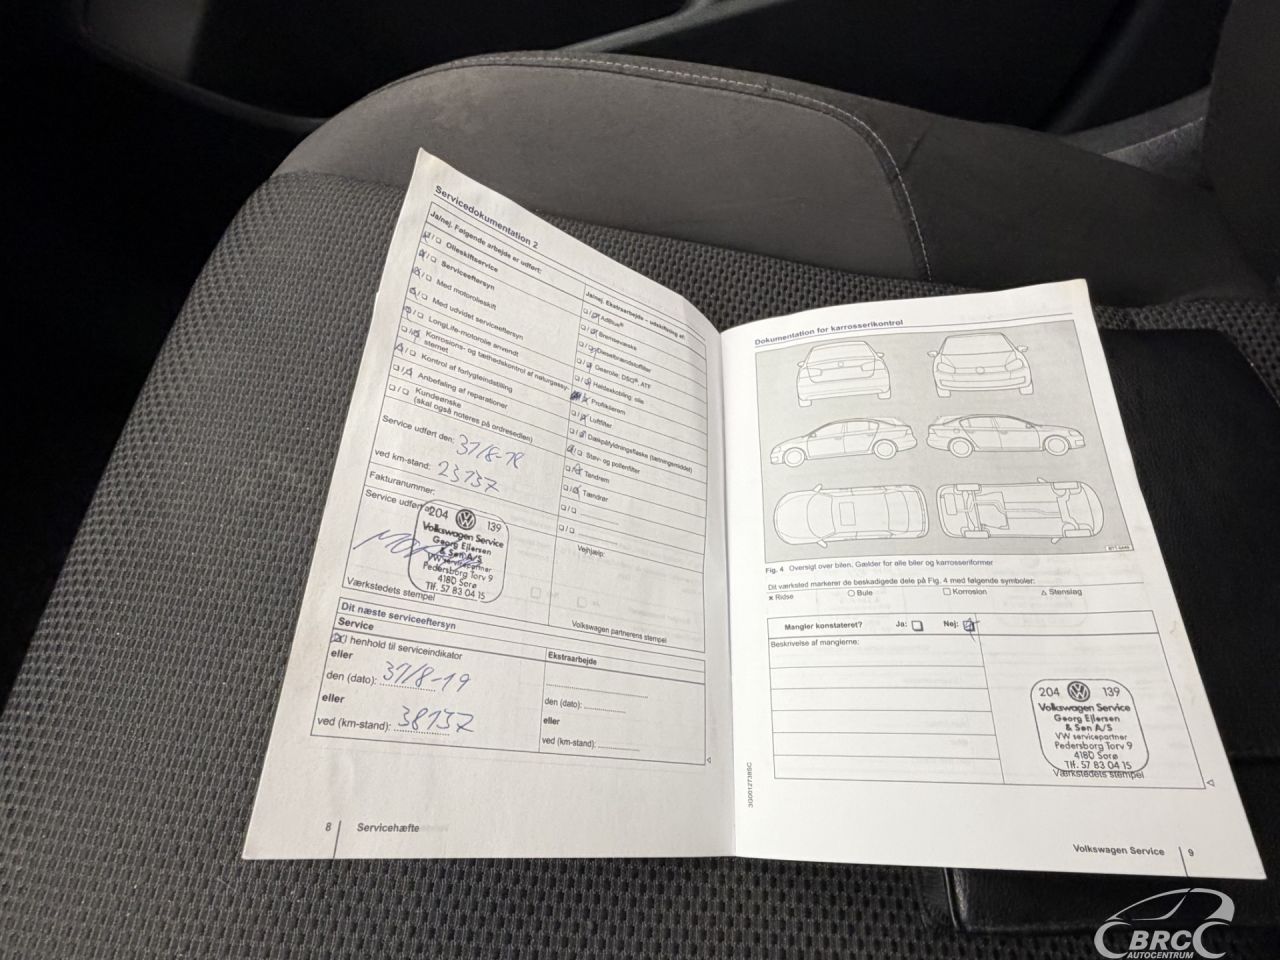 Servicedokumentation 2
Ja/nej. Følgende arbejde er udført:
Olieskiftservice
Serviceeftersyn
Med motorolieskift
Med udvidet serviceeftersyn
LongLife-motorolie anvendt
Korrosions- og tæthedskontrol af naturgassy-
stemet
Kontrol af forlygteindstilling
Anbefaling af reparationer
Kundeønske
(skal også noteres på ordresedlen)
Service udført den: 31/8-18
ved km-stand: 23137
Fakturanummer:
Service udført af:
204 139
Volkswagen Service
Georg Ejlersen
& Søn A/S
VW servicepartner
Pedersborg Torv 9
4180 Sorø
Tlf. 57 83 04 15
Værkstedets stempel
Ja/nej. Ekstraarbejde – udskiftning af:
AdBlue®
Bremsevæske
Dieselbrændstoffilter
Gearolie: DSG®, ATF
Haldexkobling: olie
Profilkilerem
Luftfilter
Dækpåfyldningsflaske (tætningsmiddel)
Støv- og pollenfilter
Tandrem
Tændrør
Vejhjælp:
Volkswagen partnerens stempel
Dit næste serviceeftersyn
Service
I henhold til serviceindikator
eller
den (dato): 31/8-19
eller
ved (km-stand): 38137
Ekstraarbejde
den (dato):
eller
ved (km-stand):
8 Servicehæfte
Dokumentation for karrosserikontrol
Fig. 4 Oversigt over bilen. Gælder for alle biler og karrosseriformer
Dit værksted markerer de beskadigede dele på Fig. 4 med følgende symboler:
× Ridse ○ Bule □ Korrosion △ Stenslag
Mangler konstateret? Ja: Nej:
Beskrivelse af manglerne:
204 139
Volkswagen Service
Georg Ejlersen
& Søn A/S
VW servicepartner
Pedersborg Torv 9
4180 Sorø
Tlf. 57 83 04 15
Værkstedets stempel
3G0012738SC
Volkswagen Service 9
BRC
AUTOCENTRUM